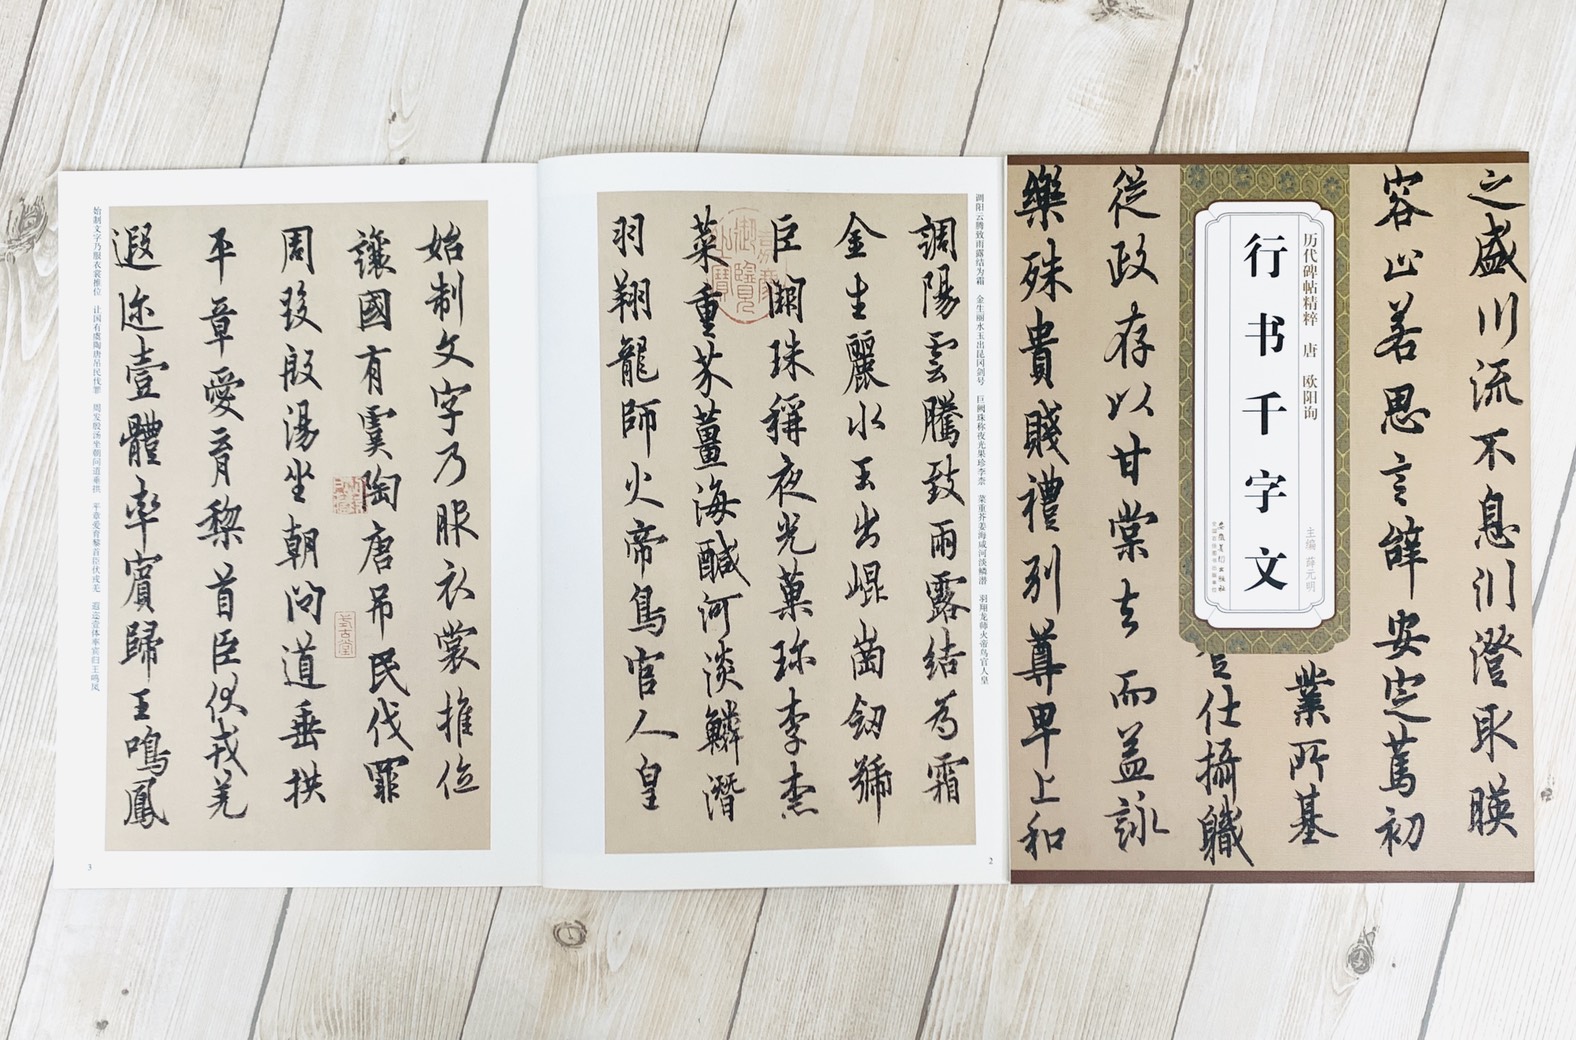 之盛川流不息渊澄取暎
容止若思言辭安定篤初
業所基
登仕攝職
從政存以甘棠去而益詠
樂殊貴賤禮別尊卑上和
历代碑帖精粹 唐 欧阳询
行书千字文
主编 薛元明
安徽美术出版社
全国百佳图书出版单位
调阳 云腾致雨露结为霜 金生丽水玉出昆冈剑号 巨阙珠称夜光果珍李柰 菜重芥姜海咸河淡鳞潜 羽翔龙师火帝鸟官人皇
調陽雲騰致雨露結為霜
金生麗水玉出崐崗劒號
巨闕珠稱夜光菓珎李柰
菜重芥薑海醎河淡鱗潛
羽翔龍師火帝鳥官人皇
嘉慶御覽之寶
2
始制文字乃服衣裳推位
讓國有虞陶唐吊民伐罪
周發殷湯坐朝問道垂拱
平章愛育黎首臣伏戎羌
遐迩壹體率賓歸王鳴鳳
式古堂
始制文字乃服衣裳推位 让国有虞陶唐吊民伐罪 周发殷汤坐朝问道垂拱 平章爱育黎首臣伏戎羌 遐迩壹体率宾归王鸣凤
3